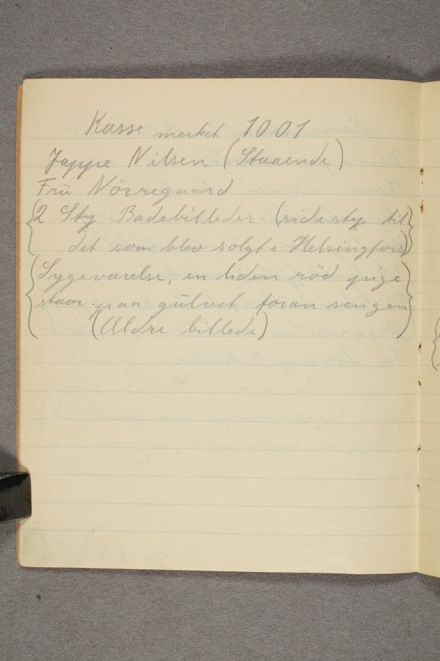 Kasse merket 1001
Jappe Nilsen (Staaende)
Fru Nörregaard
{2 Sty Badebilleder (sidesty til}
{det som blev solgt i Helsingfors)}
{Sygeværelse, en liden röd pige}
{staar paa gulvet foran sengen}
{(Ældre billede)}